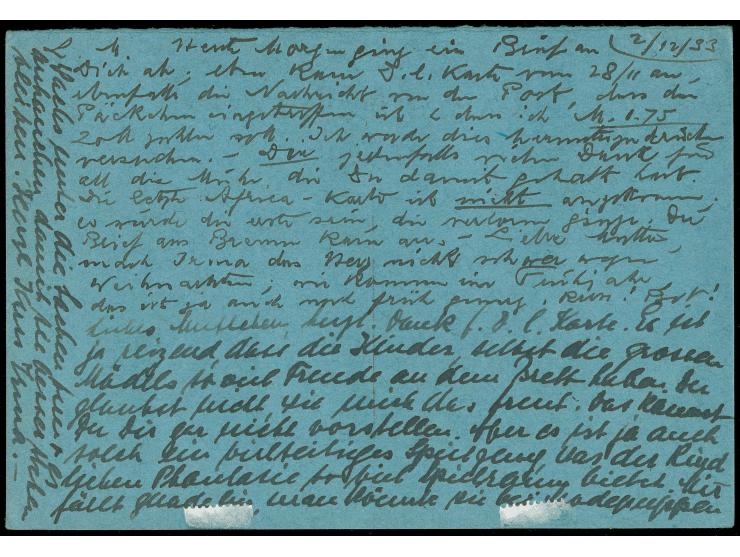 M Heute Morgen ging ein Brief an 2/12/33
Dich ab, eben kam D. l. Karte vom 28/11 an,
ebenfalls die Nachricht von der Post, dass das
Päckchen eingetroffen ist & dass ich M. 1.75
Zoll zahlen soll. Ich werde dies
versuchen. – Dir jedenfalls vielen Dank für
all die Mühe, die Du damit gehabt hast.
Die letzte Africa-Karte ist nicht angekommen,
es würde die erste sein, die verloren ginge. Der
Brief aus Bremen kam an. – Liebe Mutter,
mach Irma das Herz nicht schwer wegen
Weihnachten, wir kommen im Frühjahr,
das ist ja auch noch früh genug. Kuss!
Liebes Mutterchen, herzl. Dank f. D. l. Karte. Es ist
ja reizend, dass die Kinder, selbst die grossen
Mädels so viel Freude an dem Brett haben. Du
glaubst nicht wie mich das freut. Das kannst
Du Dir gar nicht vorstellen. Aber es ist ja auch
solch ein vielseitiges Spielzeug, was der Kind
lichen Phantasie so viel Spielraum bietet. Mir
fällt gerade ein, man könnte sie bei Modepuppen
die Sachen
damit sie besser
bleiben. Herzl. Kuss Irma. –